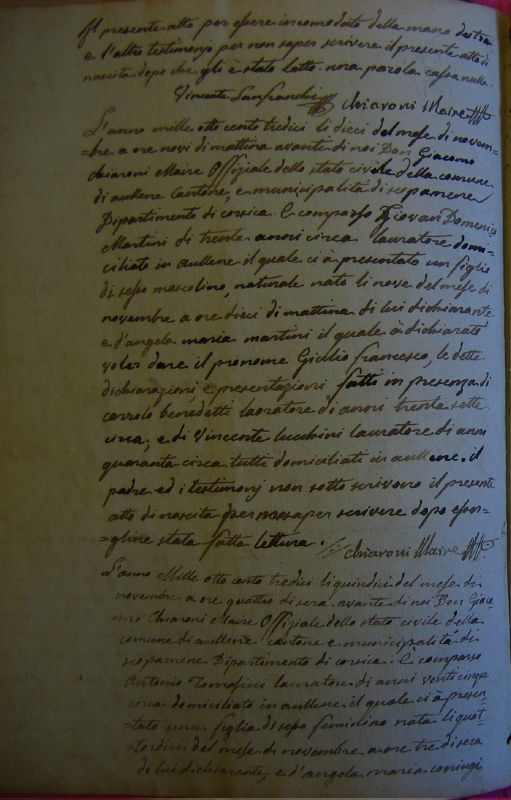 il presente atto per essere incomodato della mano destra
e l'altro testimonjo per non saper scrivere il presente atto di
nascita dopo che gli è stato letto. una parola cassa nulla.
Vincente Lanfranchi chiaroni Maire
L'anno mille otto cento tredici li dieci del mese di novem=
=bre a ore novi di mattina avante di noi Don Giacomo
chiaroni Maire Offiziale dello stato civile della comune
di aullene Cantone, e municipalità di scopamene
Dipartimento di corsica. E comparso Giovan Domenico
Martini di trenta anni circa lauratore domi=
ciliato in aullene il quale ci à presentato un figlio
di sesso mascolino, naturale nato li nove del mese di
novembre a ore dieci di mattina di lui dichiarante
e d'angela maria martini il quale à dichiarato
voler dare il pronome Giulio francesco, le dette
dichiarazioni e presentazioni fatto in presenza di
carrolo benedetti lavratore di anni trenta sette
circa, e di Vincente lucchini lauratore di anni
quaranta circa tutti domiciliati in aullene. il
padre ed i testimonj non sotto scrivono il presente
atto di nascita per non saper scrivere dopo esser=
=gliene stata fatta lettura. chiaroni Maire
L'anno Mille otto cento tredici li quindici del mese di
novembre a ore quattro di sera avante di noi Don Giaco=
=mo Chiaroni Maire Offiziale dello stato civile della
comune di aullene cantone e municipalità di
scopamene Dipartimento di corsica. È comparso
Antonio Tomasini lauratore di anni venti cinque
circa domiciliato in aullene il quale ci à presen=
=tato una figlia di sesso feminino nata li quat=
=tordici del mese di novembre a ore tre di sera
di lui dichiarante, e d'angela maria coniugi